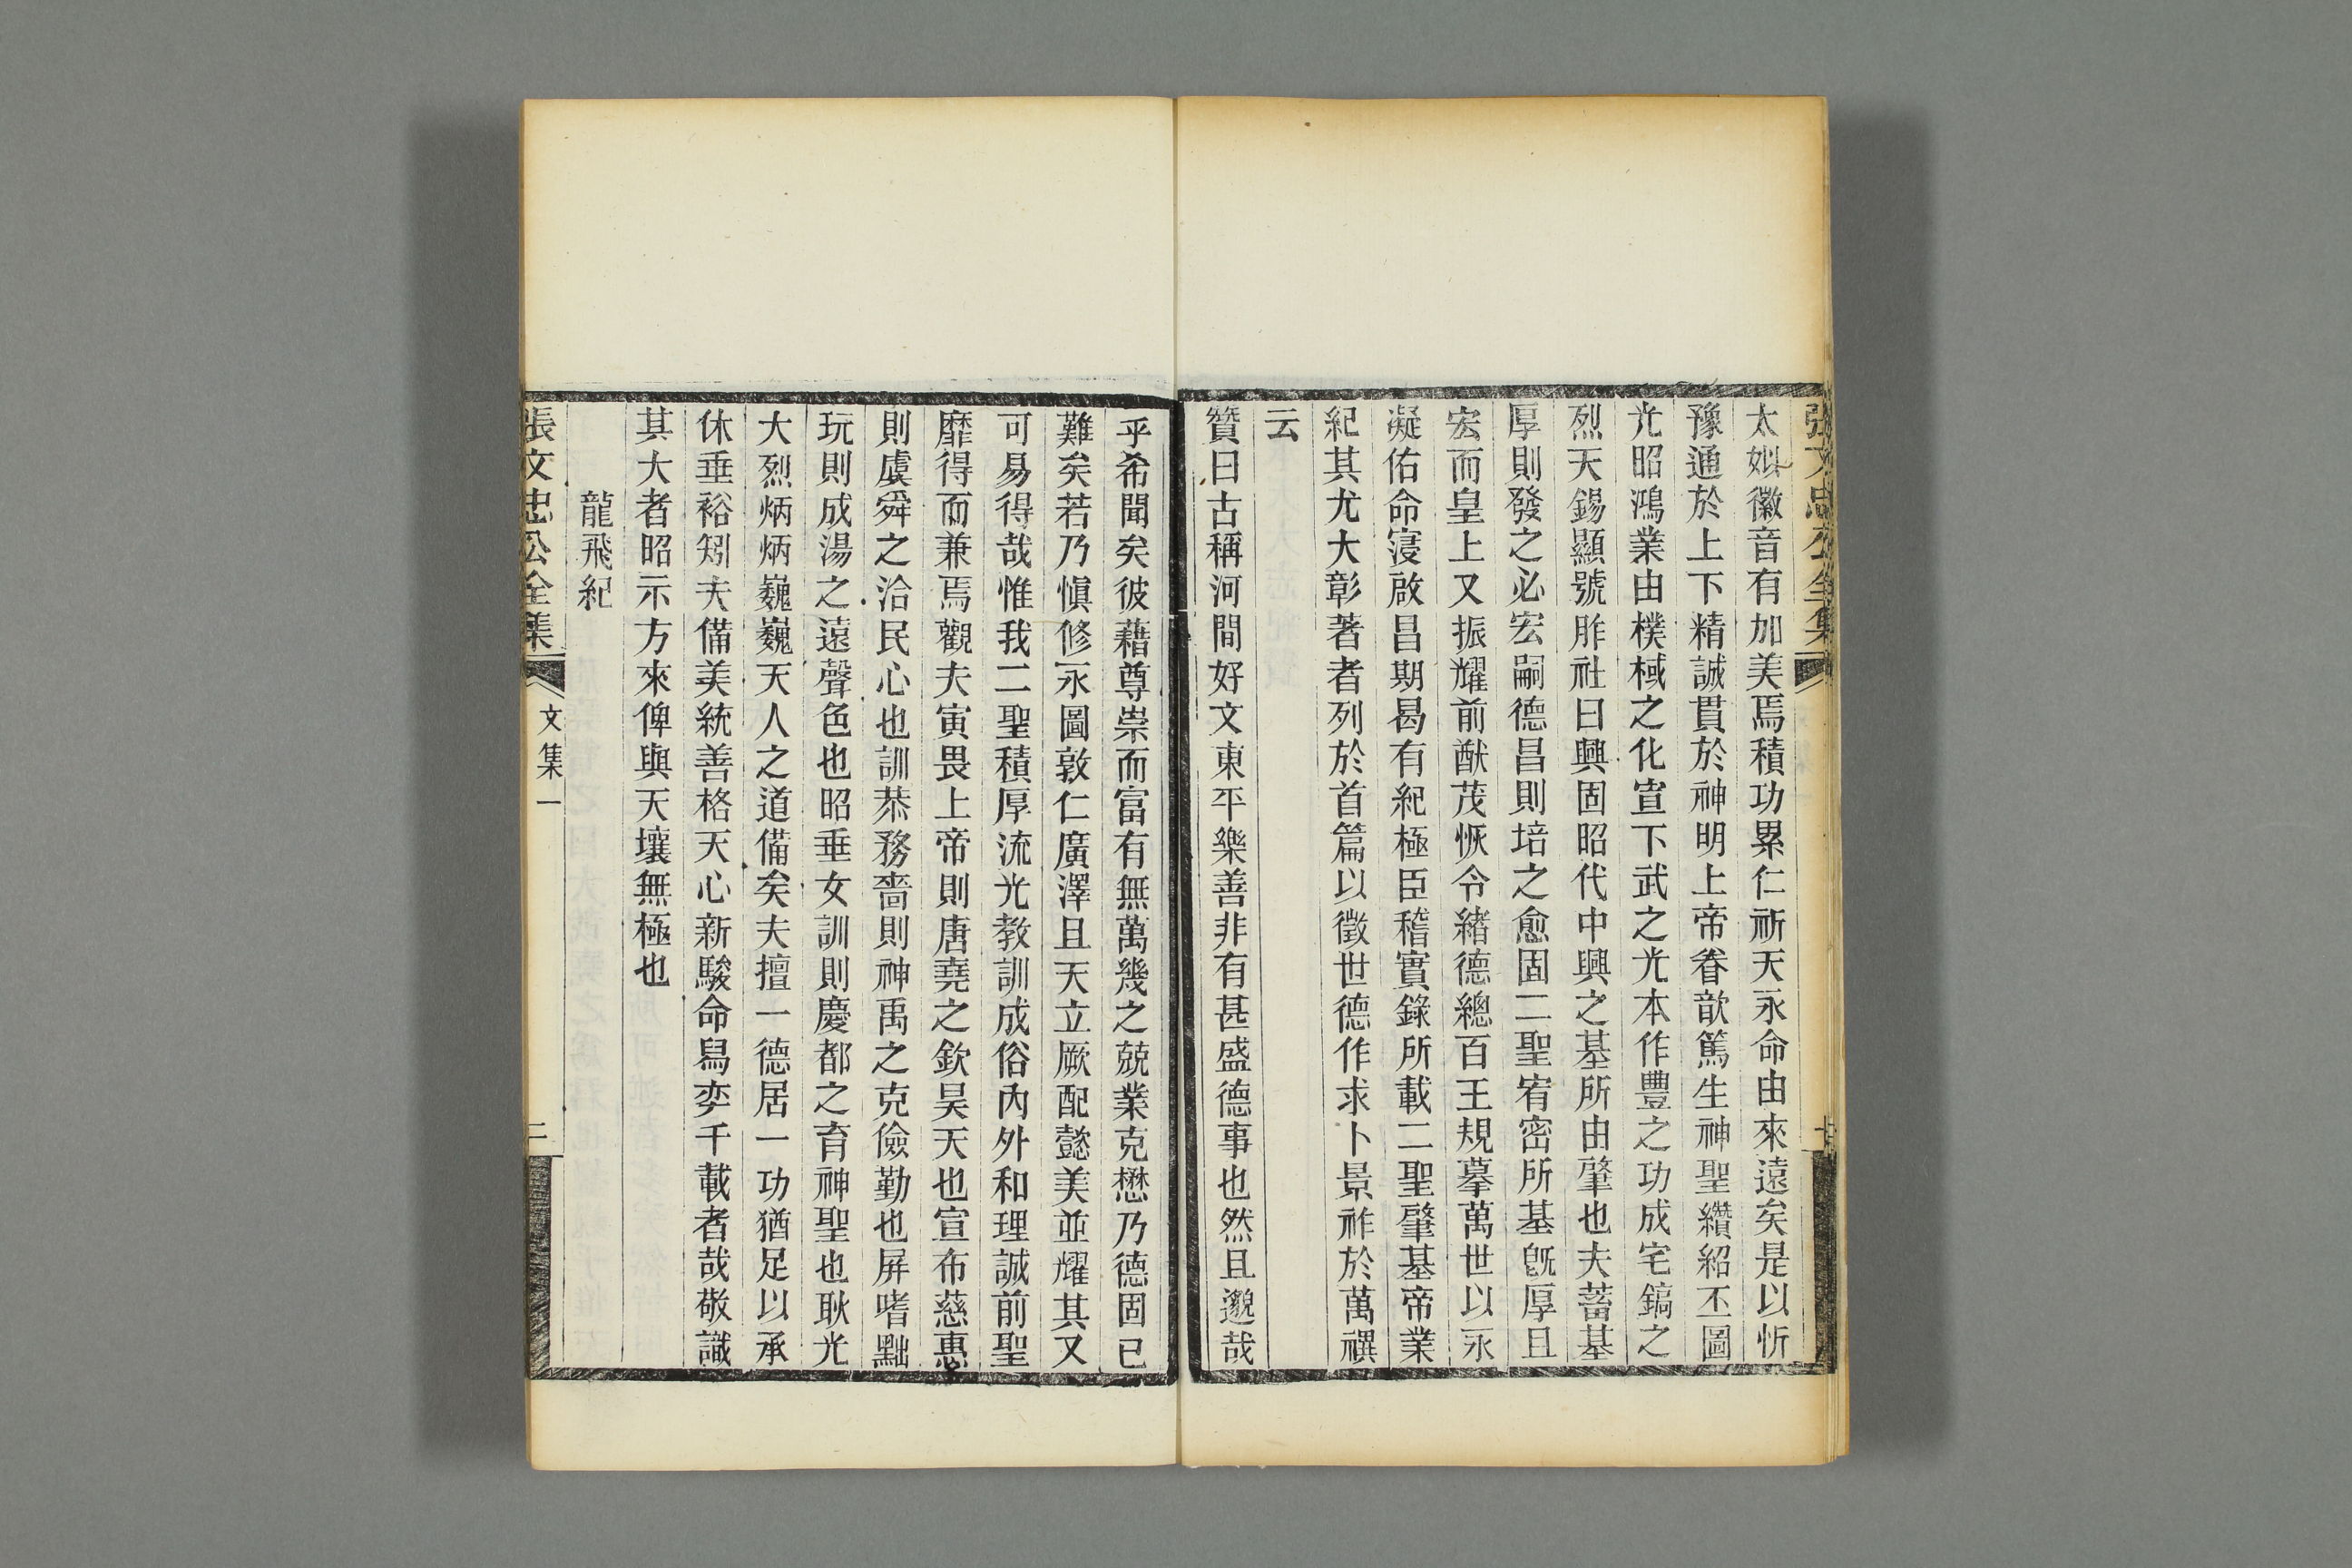 張文忠公全集
太姒徽音有加美焉積功累仁祈天永命由來遠矣是以忻
豫通於上下精誠貫於神明上帝眷歆篤生神聖纘紹丕圖
光昭鴻業由樸棫之化宣下武之光本作豐之功成宅鎬之
烈天錫顯號胙社曰興固昭代中興之基所由肇也夫蓄基
厚則發之必宏嗣德昌則培之愈固二聖宥密所基旣厚且
宏而皇上又振耀前猷茂恢令緒德總百王規摹萬世以永
凝佑命寖啟昌期曷有紀極臣稽實錄所載二聖肇基帝業
紀其尤大彰著者列於首篇以徵世德作求卜景祚於萬禩
云
贊曰古稱河間好文東平樂善非有甚盛德事也然且邈哉
乎希聞矣彼藉尊崇而富有無萬幾之兢業克懋乃德固已
難矣若乃愼修永圖敦仁廣澤且天立厥配懿美並耀其又
可易得哉惟我二聖積厚流光教訓成俗內外和理誠前聖
靡得而兼焉觀夫寅畏上帝則唐堯之欽昊天也宣布慈惠
則虞舜之洽民心也訓恭務嗇則神禹之克儉勤也屏嗜黜
玩則成湯之遠聲色也昭垂女訓則慶都之育神聖也耿光
大烈炳炳巍巍天人之道備矣夫擅一德居一功猶足以承
休垂裕矧夫備美統善格天心新駿命舄奕千載者哉敬識
其大者昭示方來俾與天壤無極也
龍飛紀
張文忠公全集
文集一
二